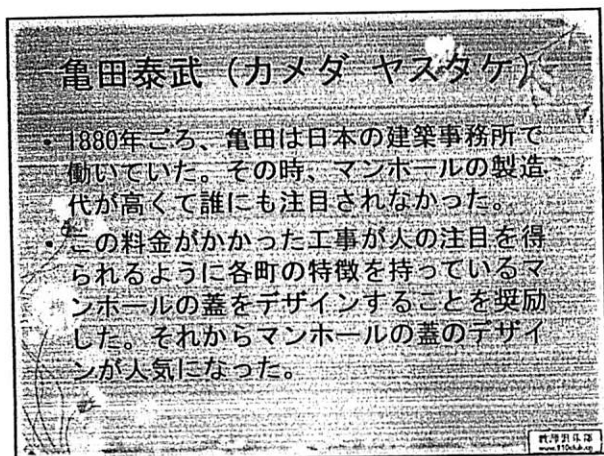 亀田泰武（カメダ ヤスタケ）
・1880年ごろ、亀田は日本の建築事務所で
働いていた。その時、マンホールの製造
代が高くて誰にも注目されなかった。
・この料金がかかった工事が人の注目を得
られるように各町の特徴を持っているマ
ンホールの蓋をデザインすることを奨励
した。それからマンホールの蓋のデザイ
ンが人気になった。